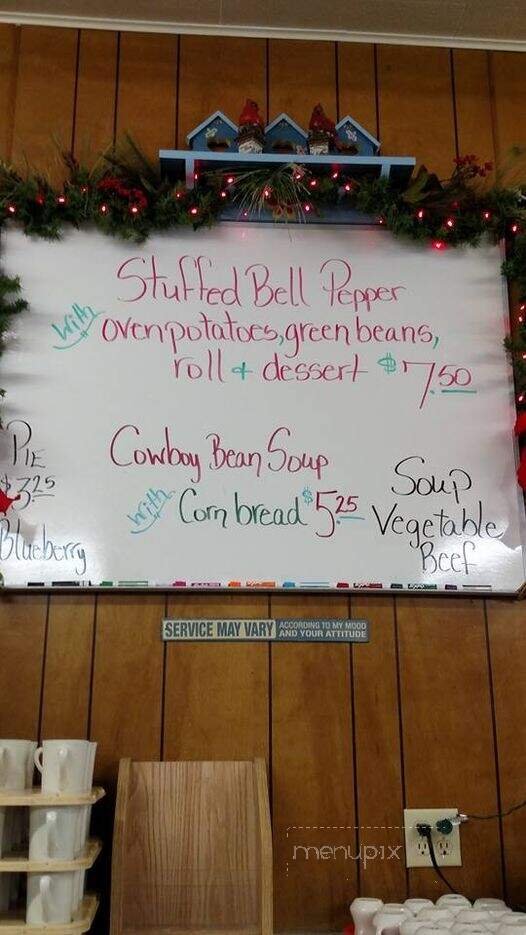 Stuffed Bell Pepper
With oven potatoes, green beans,
roll + dessert $7.50
PIE
$3.25
Blueberry
Cowboy Bean Soup
with Corn bread $5.25
Soup
Vegetable
Beef
SERVICE MAY VARY ACCORDING TO MY MOOD
AND YOUR ATTITUDE
menupix